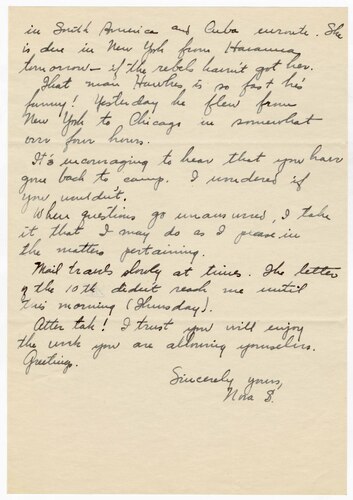 in South America and Cuba enroute. She
is due in New York from Havanna
tomorrow – if the rebels havn't got her.
That man Hawkes is so fast he's
funny! Yesterday he flew from
New York to Chicago in somewhat
over four hours.
It's encouraging to hear that you have
gone back to camp. I wondered if
you wouldn't.
When questions go unanswered, I take
it that I may do as I please in
the matters pertaining.
Mail travels slowly at times. The letter
of the 10th didn't reach me until
this morning (Thursday).
After tak! I trust you will enjoy
the work you are allowing yourselves.
Greetings.
Sincerely yours,
Nora S.